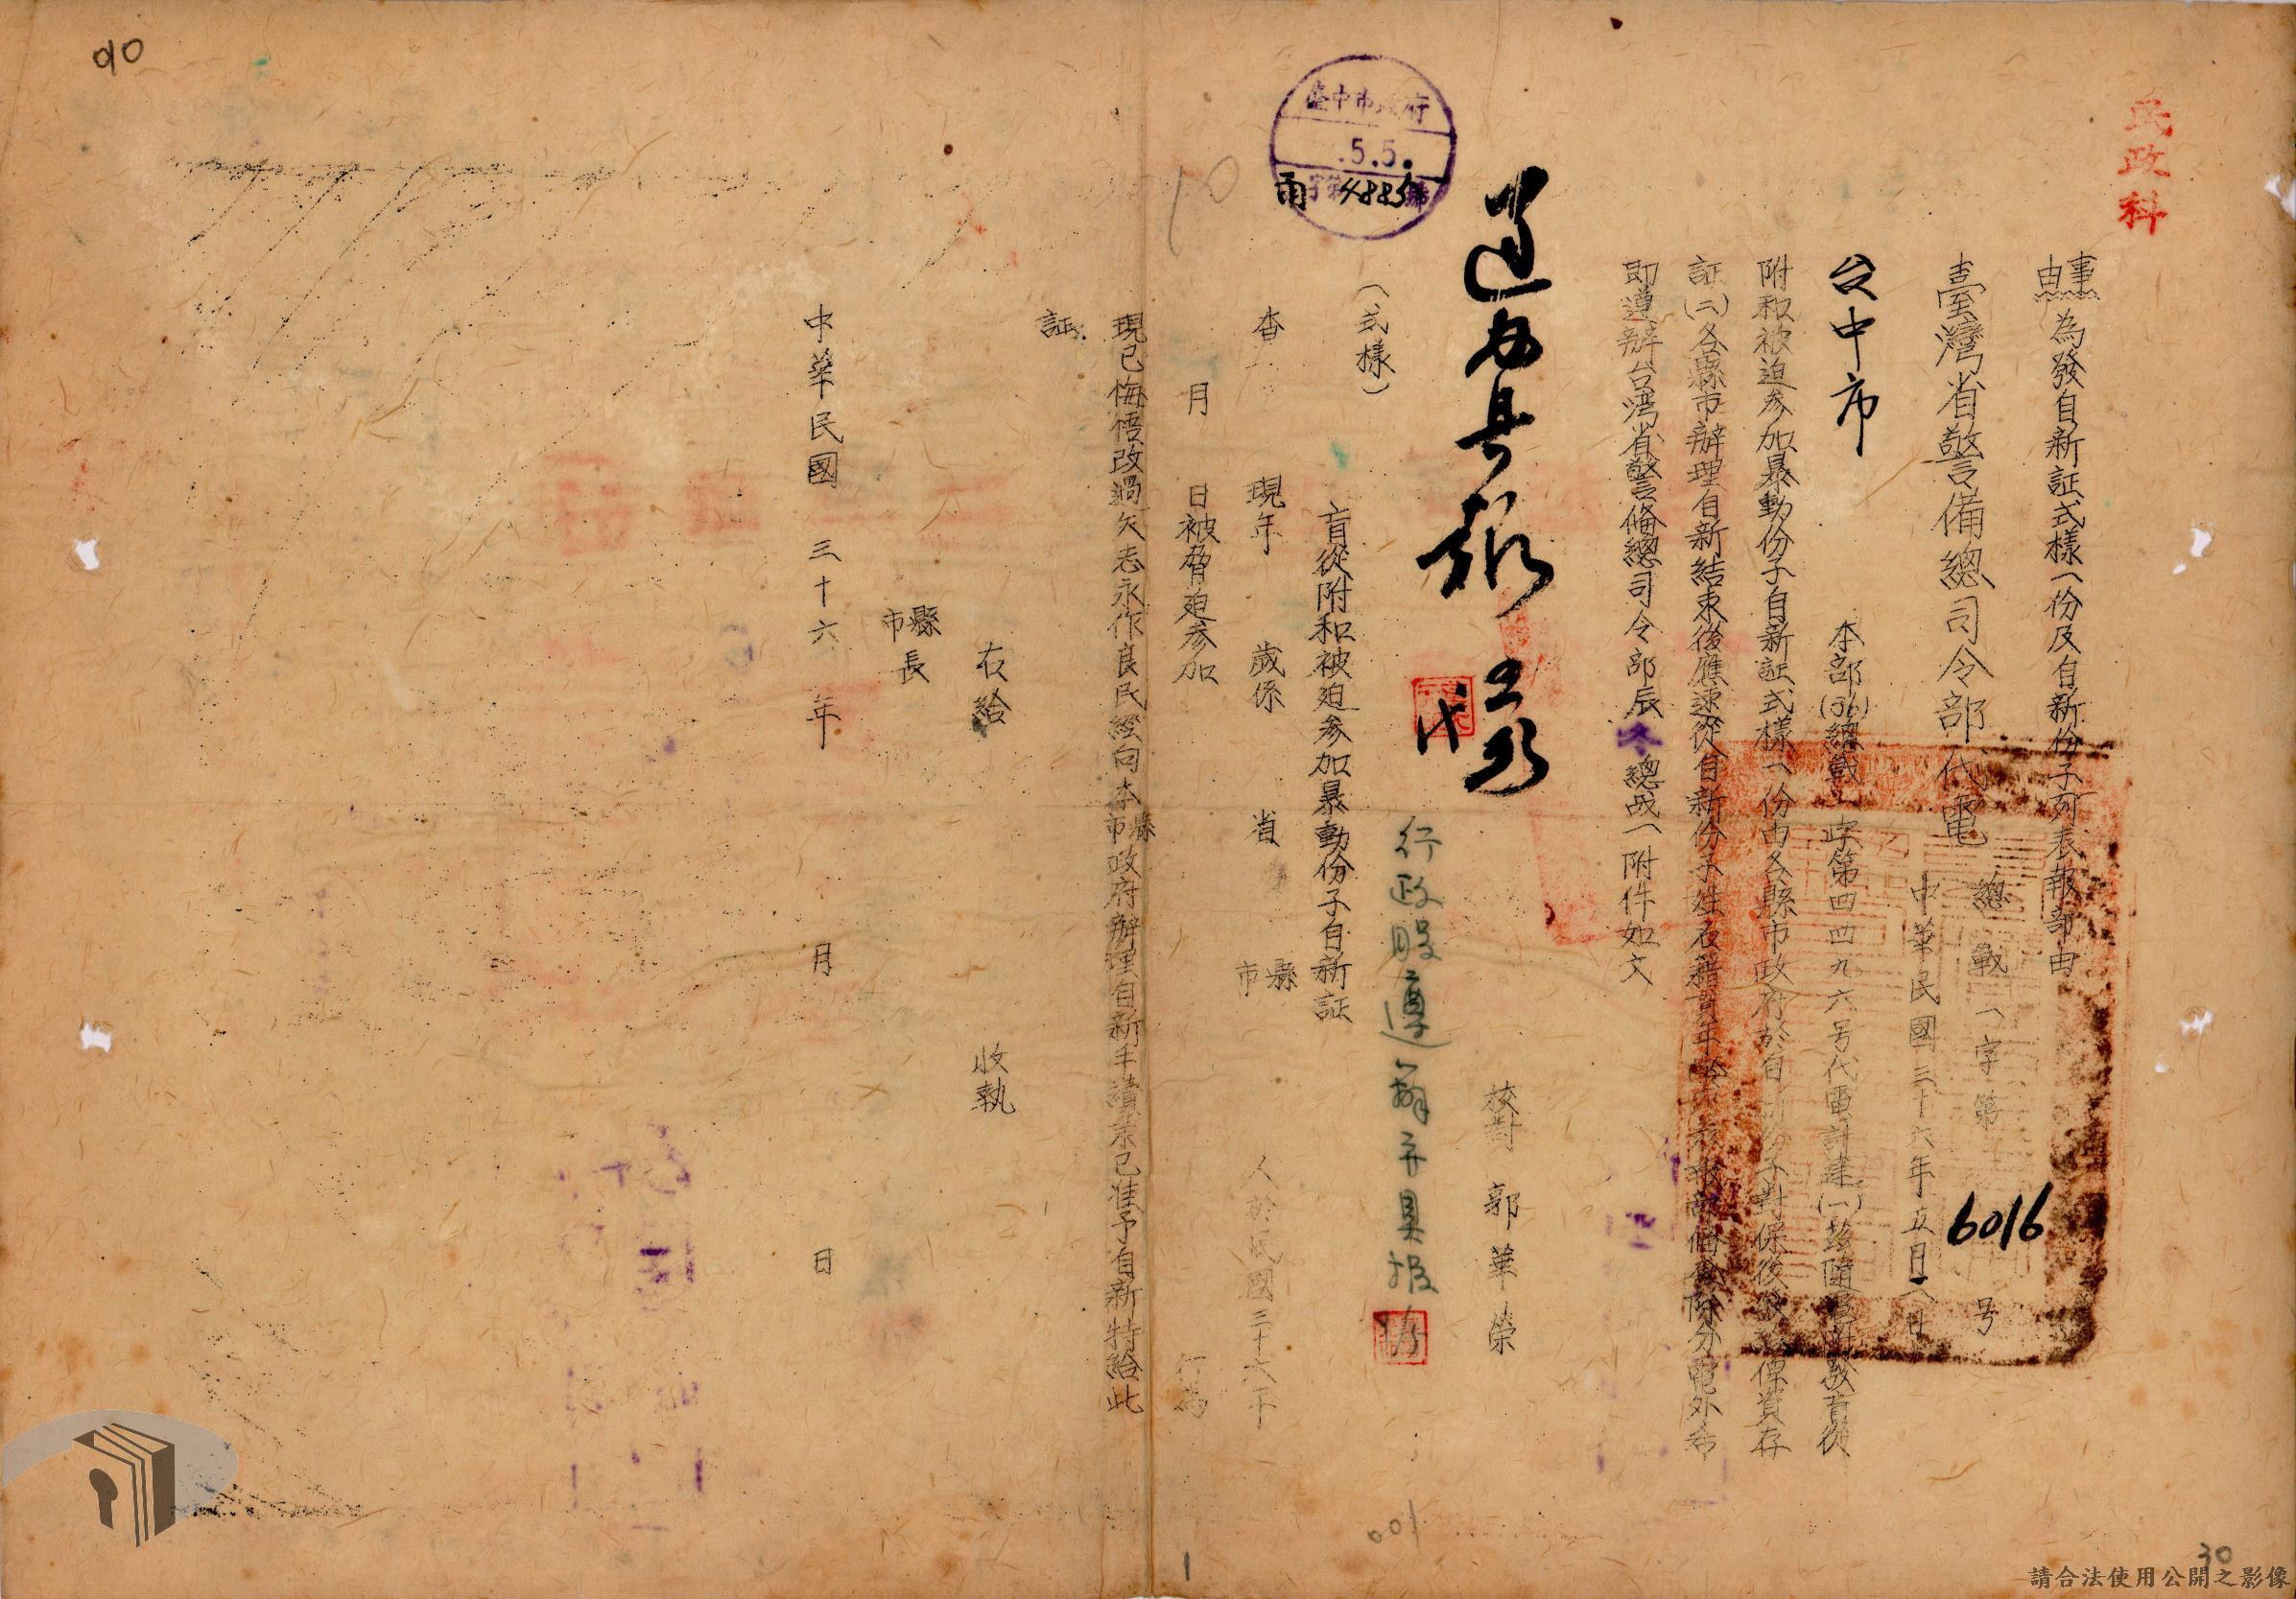 民政科
事由 為發自新証式樣一份及自新份子列表報部由
臺灣省警備總司令部代電
總戰一字第6016号
中華民國三十六年五月二日
台中市
本部(36)總戰一字第四四九六号代電計達(一)茲隨電附發盲從
附和被迫参加暴動份子自新証式樣一份由各縣市政府於自新份子對保後發給俾資存
証(二)各縣市辦理自新結束後應速從自新份子姓名籍貫年齡報部備查除分電外希
即遵辦台湾省警備總司令部辰冬總战一附件如文
校對 郭華榮
遵办具报
代
行政股遵辦并具报
臺中市政府
.5.5.
雨字第4885號
(式樣)
盲從附和被迫参加暴動份子自新証
查 現年 歲係 省 縣市 人於民國三十六年
月 日被脅迫参加 行為
現已悔悟改過矢志永作良民經向本縣市政府辦理自新手續業已准予自新特給此
証
右給 收執
縣市長
中華民國三十六年 月 日
90
10
001
1
30
請合法使用公開之影像